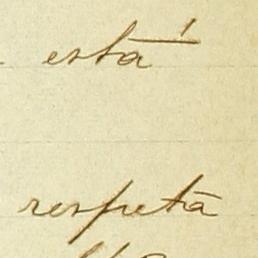 está
respetā